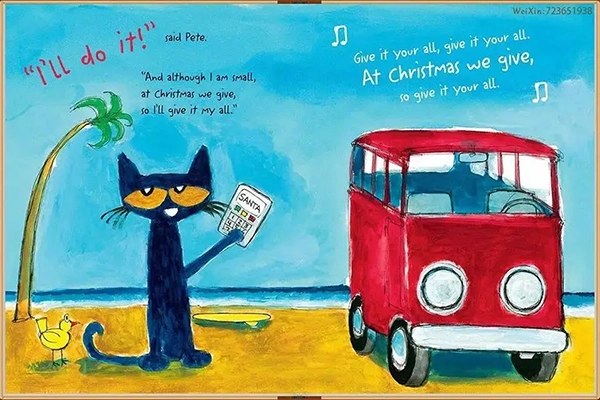 WeiXin:723651938
"I'll do it!" said Pete.
"And although I am small,
at Christmas we give,
so I'll give it my all."
Give it your all, give it your all.
At Christmas we give,
so give it your all.
SANTA
1 2 3